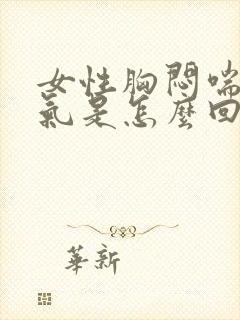 女性胸悶喘
氣是怎麼回
華新